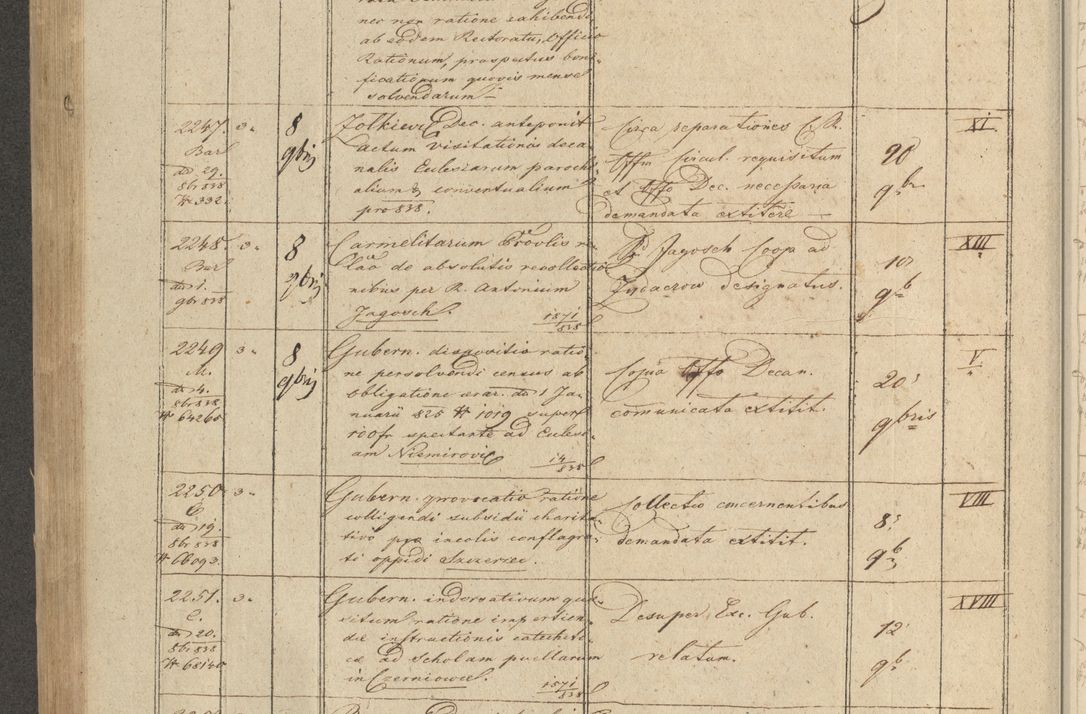 nec non ratione exhibendi
ab eodem Rectoratu, Officio
Rationum, prospectus boni-
ficationum quovis mense
solvendarum
2247. 3.
Bar
dto 29.
8br 838
# 332.
8
9bris
Zolkievi Dec. anteponit
actum visitationis deca
nalis Ecclesiarum parochi
alium & conventualium
pro 838.
Circa separationes C. R.
Offm Circul. requisitum
et Offo Dec. necessaria
demandata extitere
20
9br
XI.
2248. 3.
Bar
dto 1.
9br 838
8
9bris
Carmelitarum Provlis re-
lao de absolutis recollectio
nibus per R. Antonium
Jagosch.
1571/838
R. Jagosch Coop ad
designatus.
10
9b
XIII
2249 3.
M.
dto 4.
8br 838
# 64265
8
9bris
Gubern. dispositio ratio
ne persolvendi census ab
obligatione aerar. dto 1 Ja-
nuarii 825 # 1019 super
100 fr spectante ad Eccles-
iam Niemirovi
14/838
Copia Offo Decan.
comunicata extitit.
20
9bris
V.
2250. 3.
C.
dto 19.
8br 838
# 66093.
Gubern. provocatio ratione
colligendi subsidii charita
tivo pro incolis conflagra-
ti oppidi Szczerzec.
Collectio concernentibus
demandata extitit.
8
9b
VIII
2251. 3.
C.
dto 20.
8br 838
# 68140
Gubern. indorsativum quae
situm ratione impertien-
dae instructionis catecheti
cae ad scholam puellarum
in Czerniowce.
1571/838
Desuper Exc. Gub.
relatum.
12
9b
XVIII